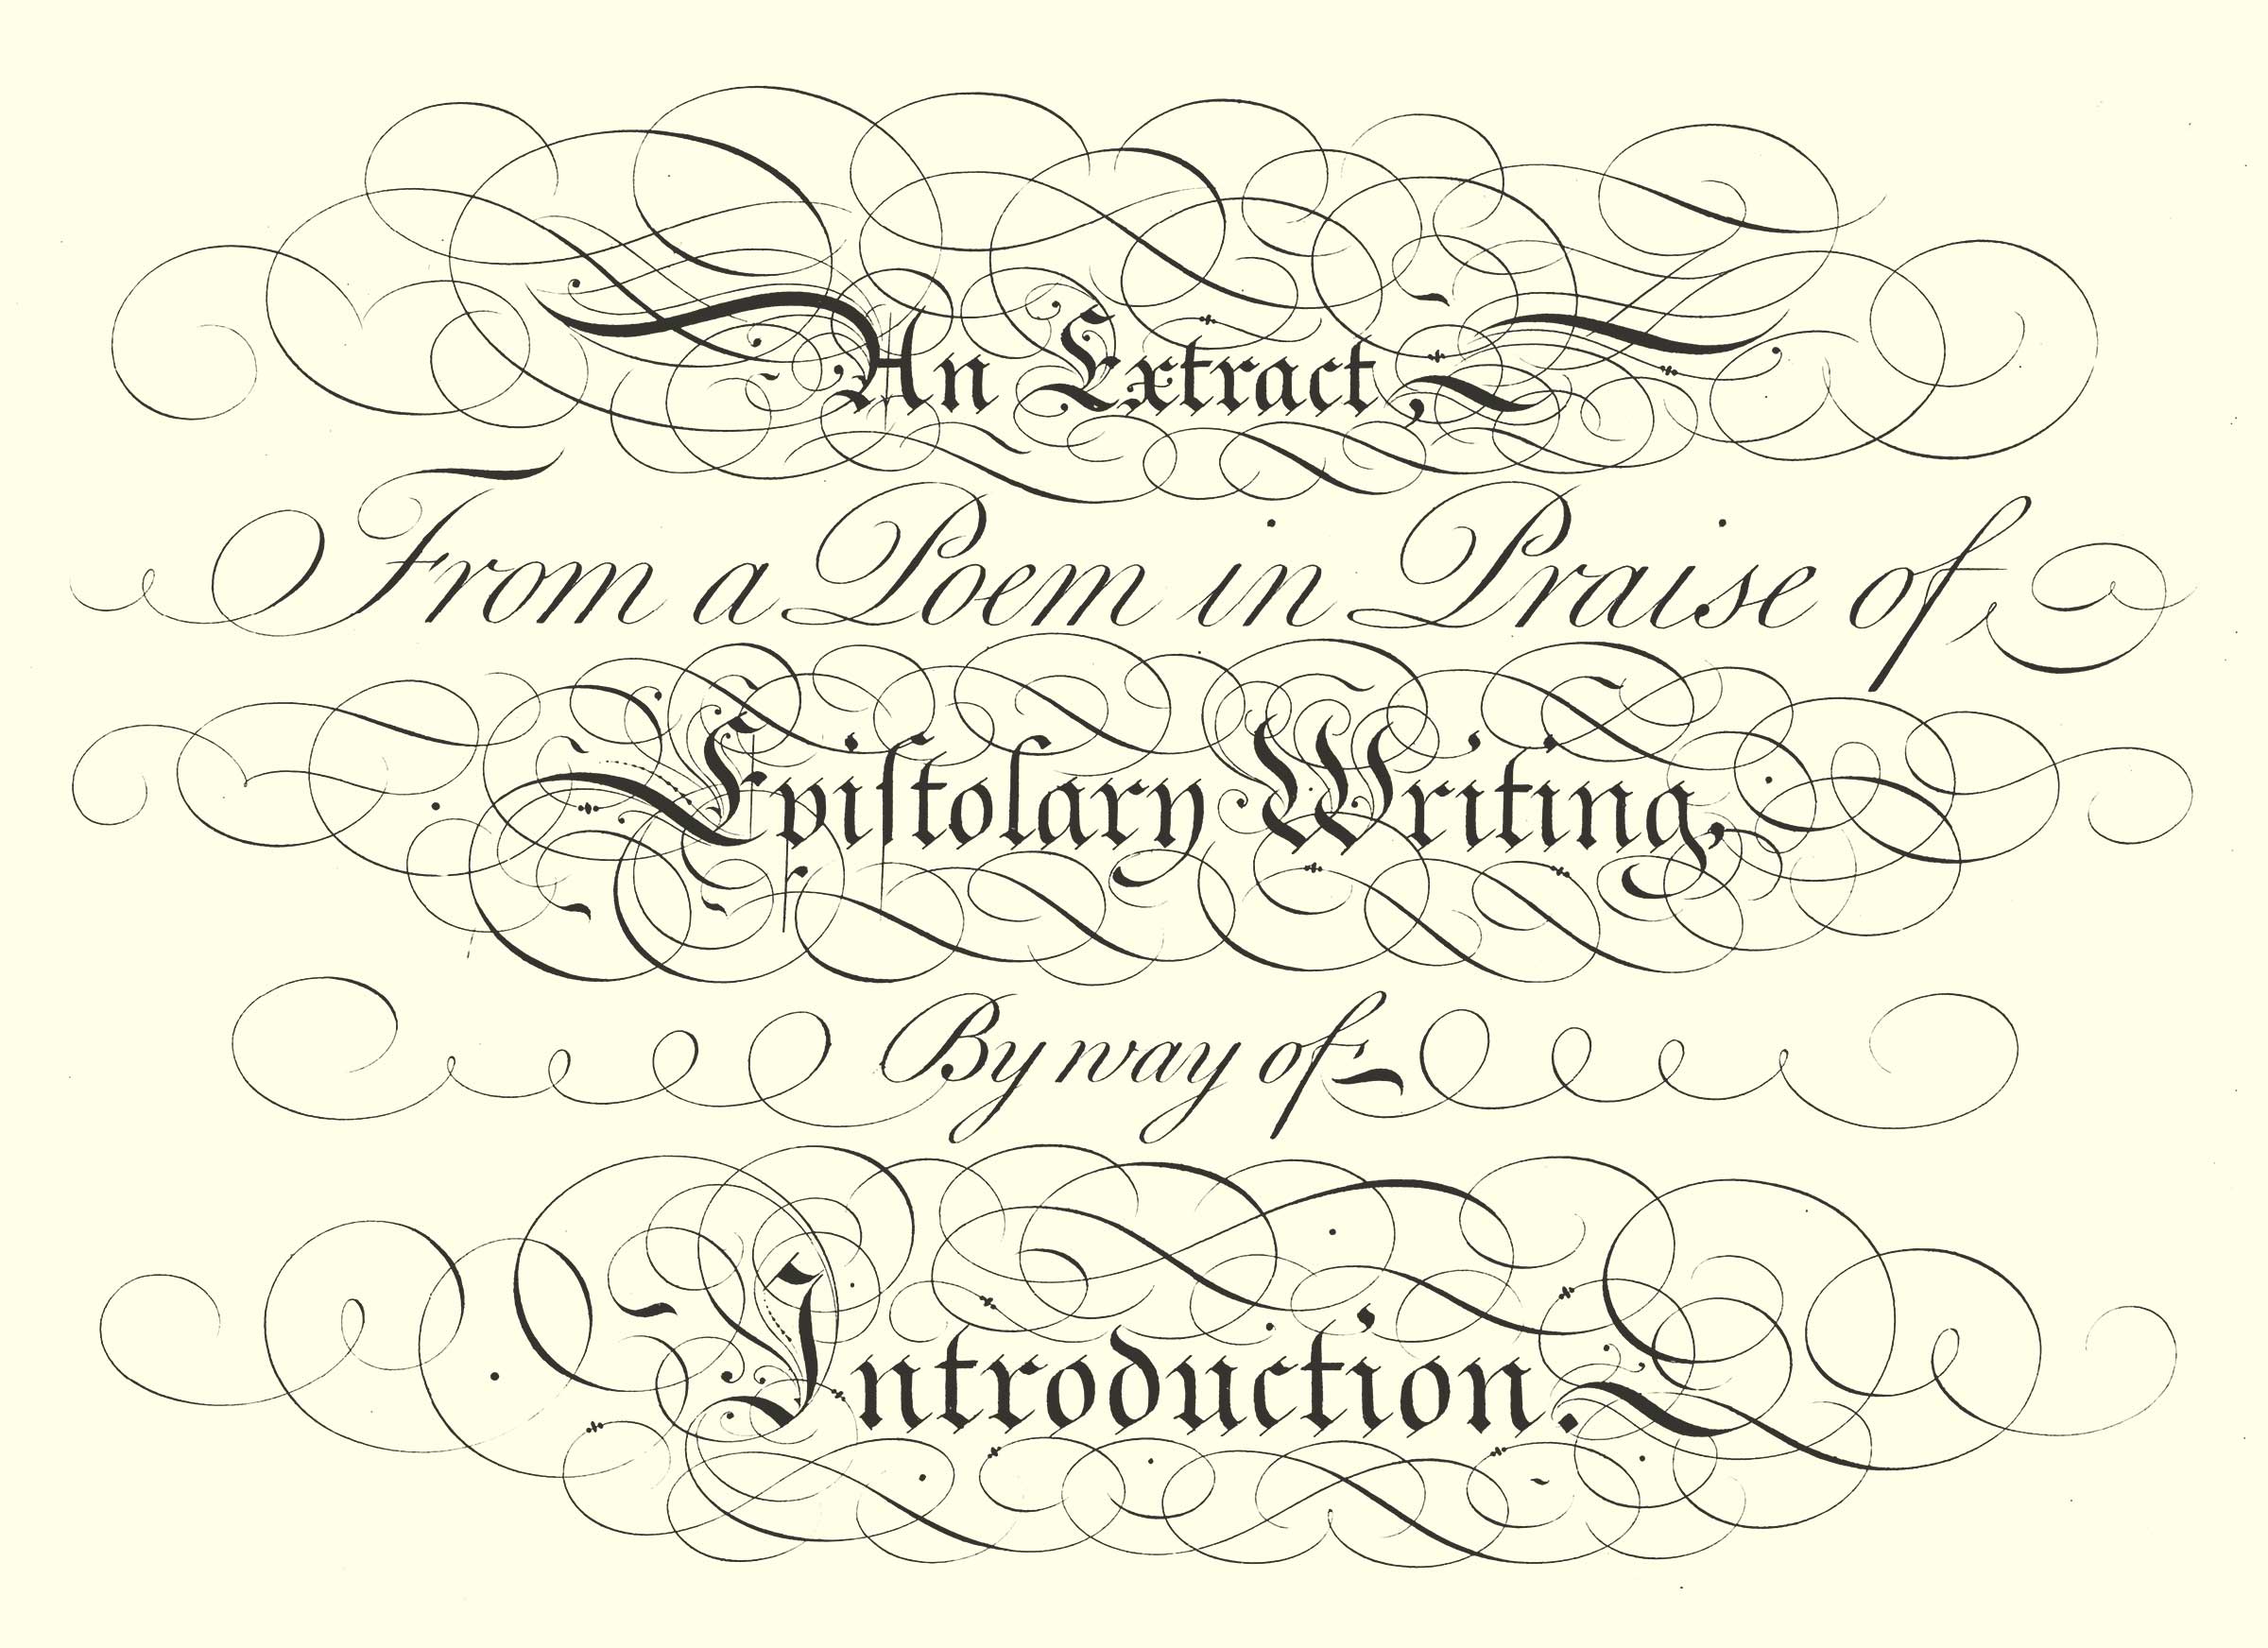 An Extract,
From a Poem in Praise of
Epiſtolary Writing,
By way of
Introduction.